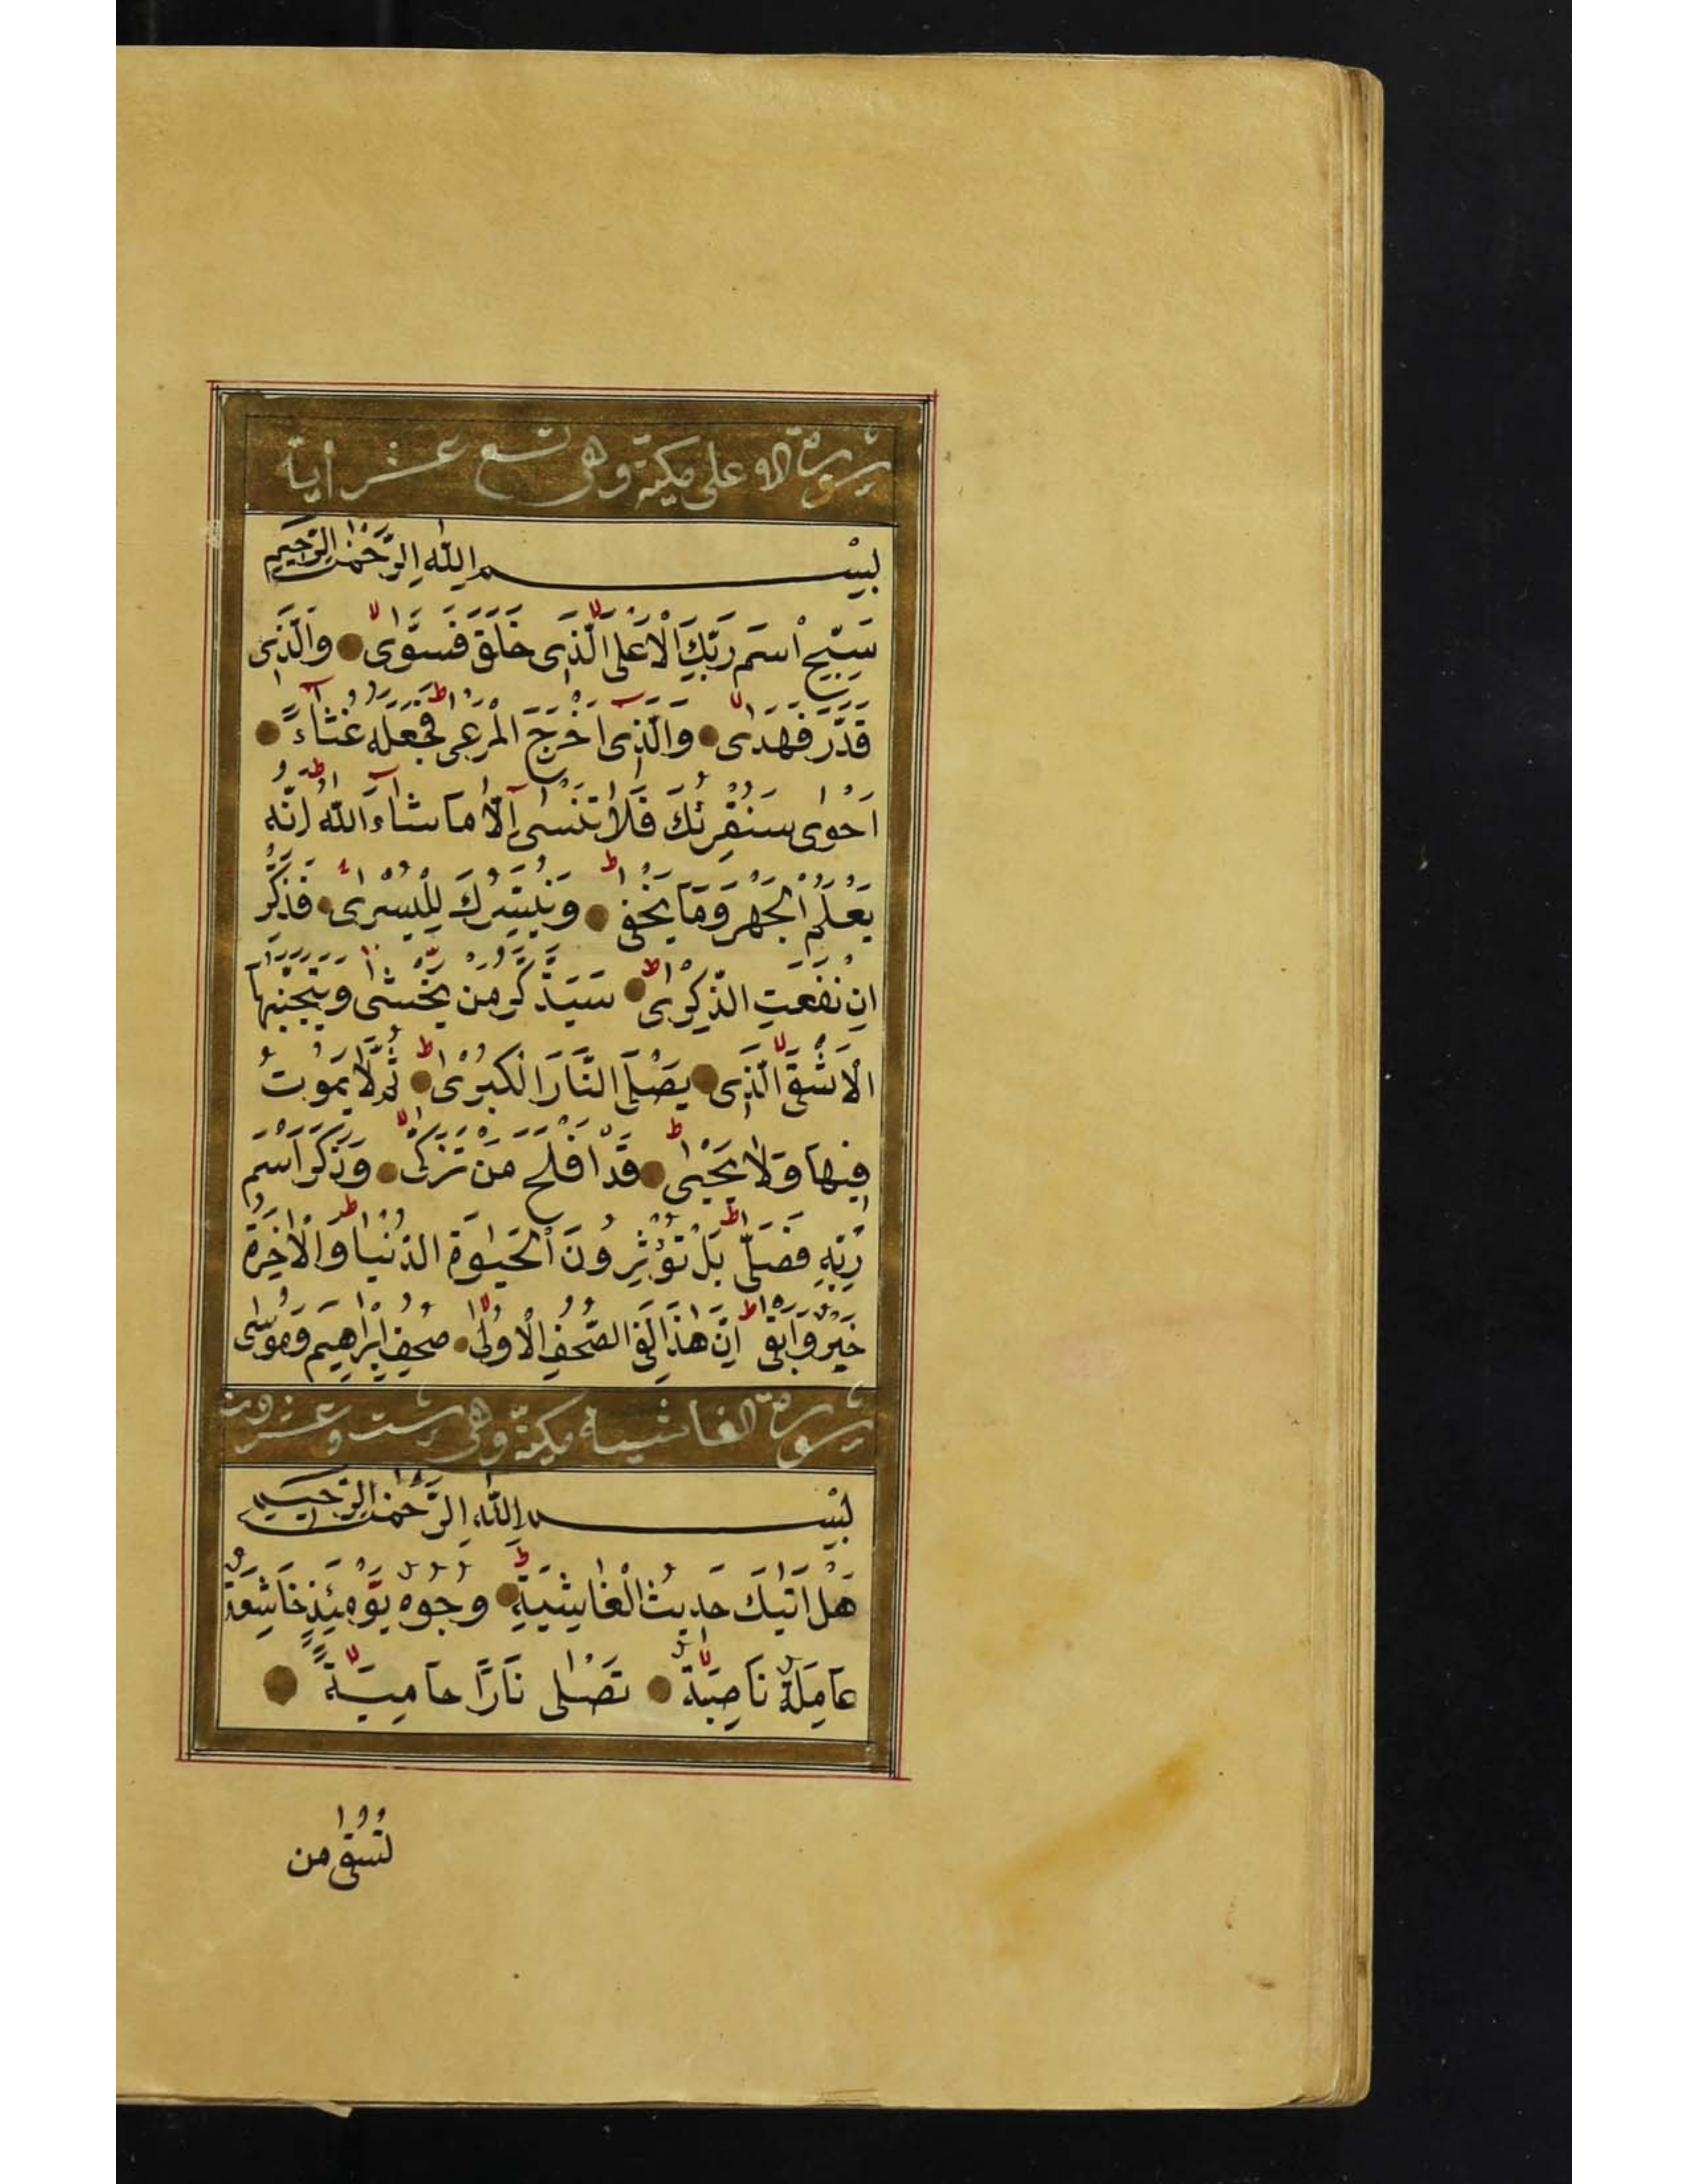 سورة الاعلى مكية وهى تسع عشر أية
بِسْمِ اللّٰهِ الرَّحْمٰنِ الرَّحِيمِ
سَبِّحِ اسْمَ رَبِّكَ الْاَعْلَى الَّذِى خَلَقَ فَسَوّٰى وَالَّذِى
قَدَّرَ فَهَدٰى وَالَّذِىٓ اَخْرَجَ الْمَرْعٰى فَجَعَلَهُ غُثَآءً
اَحْوٰى سَنُقْرِئُكَ فَلَا تَنْسٰىٓ اِلَّا مَا شَآءَ اللّٰهُ اِنَّهُ
يَعْلَمُ الْجَهْرَ وَمَا يَخْفٰى وَنُيَسِّرُكَ لِلْيُسْرٰى فَذَكِّرْ
اِنْ نَفَعَتِ الذِّكْرٰى سَيَذَّكَّرُ مَنْ يَخْشٰى وَيَتَجَنَّبُهَا
الْاَشْقَى الَّذِى يَصْلَى النَّارَ الْكُبْرٰى ثُمَّ لَا يَمُوتُ
فِيهَا وَلَا يَحْيٰى قَدْ اَفْلَحَ مَنْ تَزَكّٰى وَذَكَرَ اسْمَ
رَبِّهِ فَصَلّٰى بَلْ تُؤْثِرُونَ الْحَيٰوةَ الدُّنْيَا وَالْاٰخِرَةُ
خَيْرٌ وَاَبْقٰى اِنَّ هٰذَا لَفِى الصُّحُفِ الْاُولٰى صُحُفِ اِبْرٰهِيمَ وَمُوسٰى
سورة الغاشية مكية وهى ست وعشرون
بِسْمِ اللّٰهِ الرَّحْمٰنِ الرَّحِيمِ
هَلْ اَتٰيكَ حَدِيثُ الْغَاشِيَةِ وُجُوهٌ يَوْمَئِذٍ خَاشِعَةٌ
عَامِلَةٌ نَاصِبَةٌ تَصْلٰى نَارًا حَامِيَةً
تُسْقٰى مِنْ